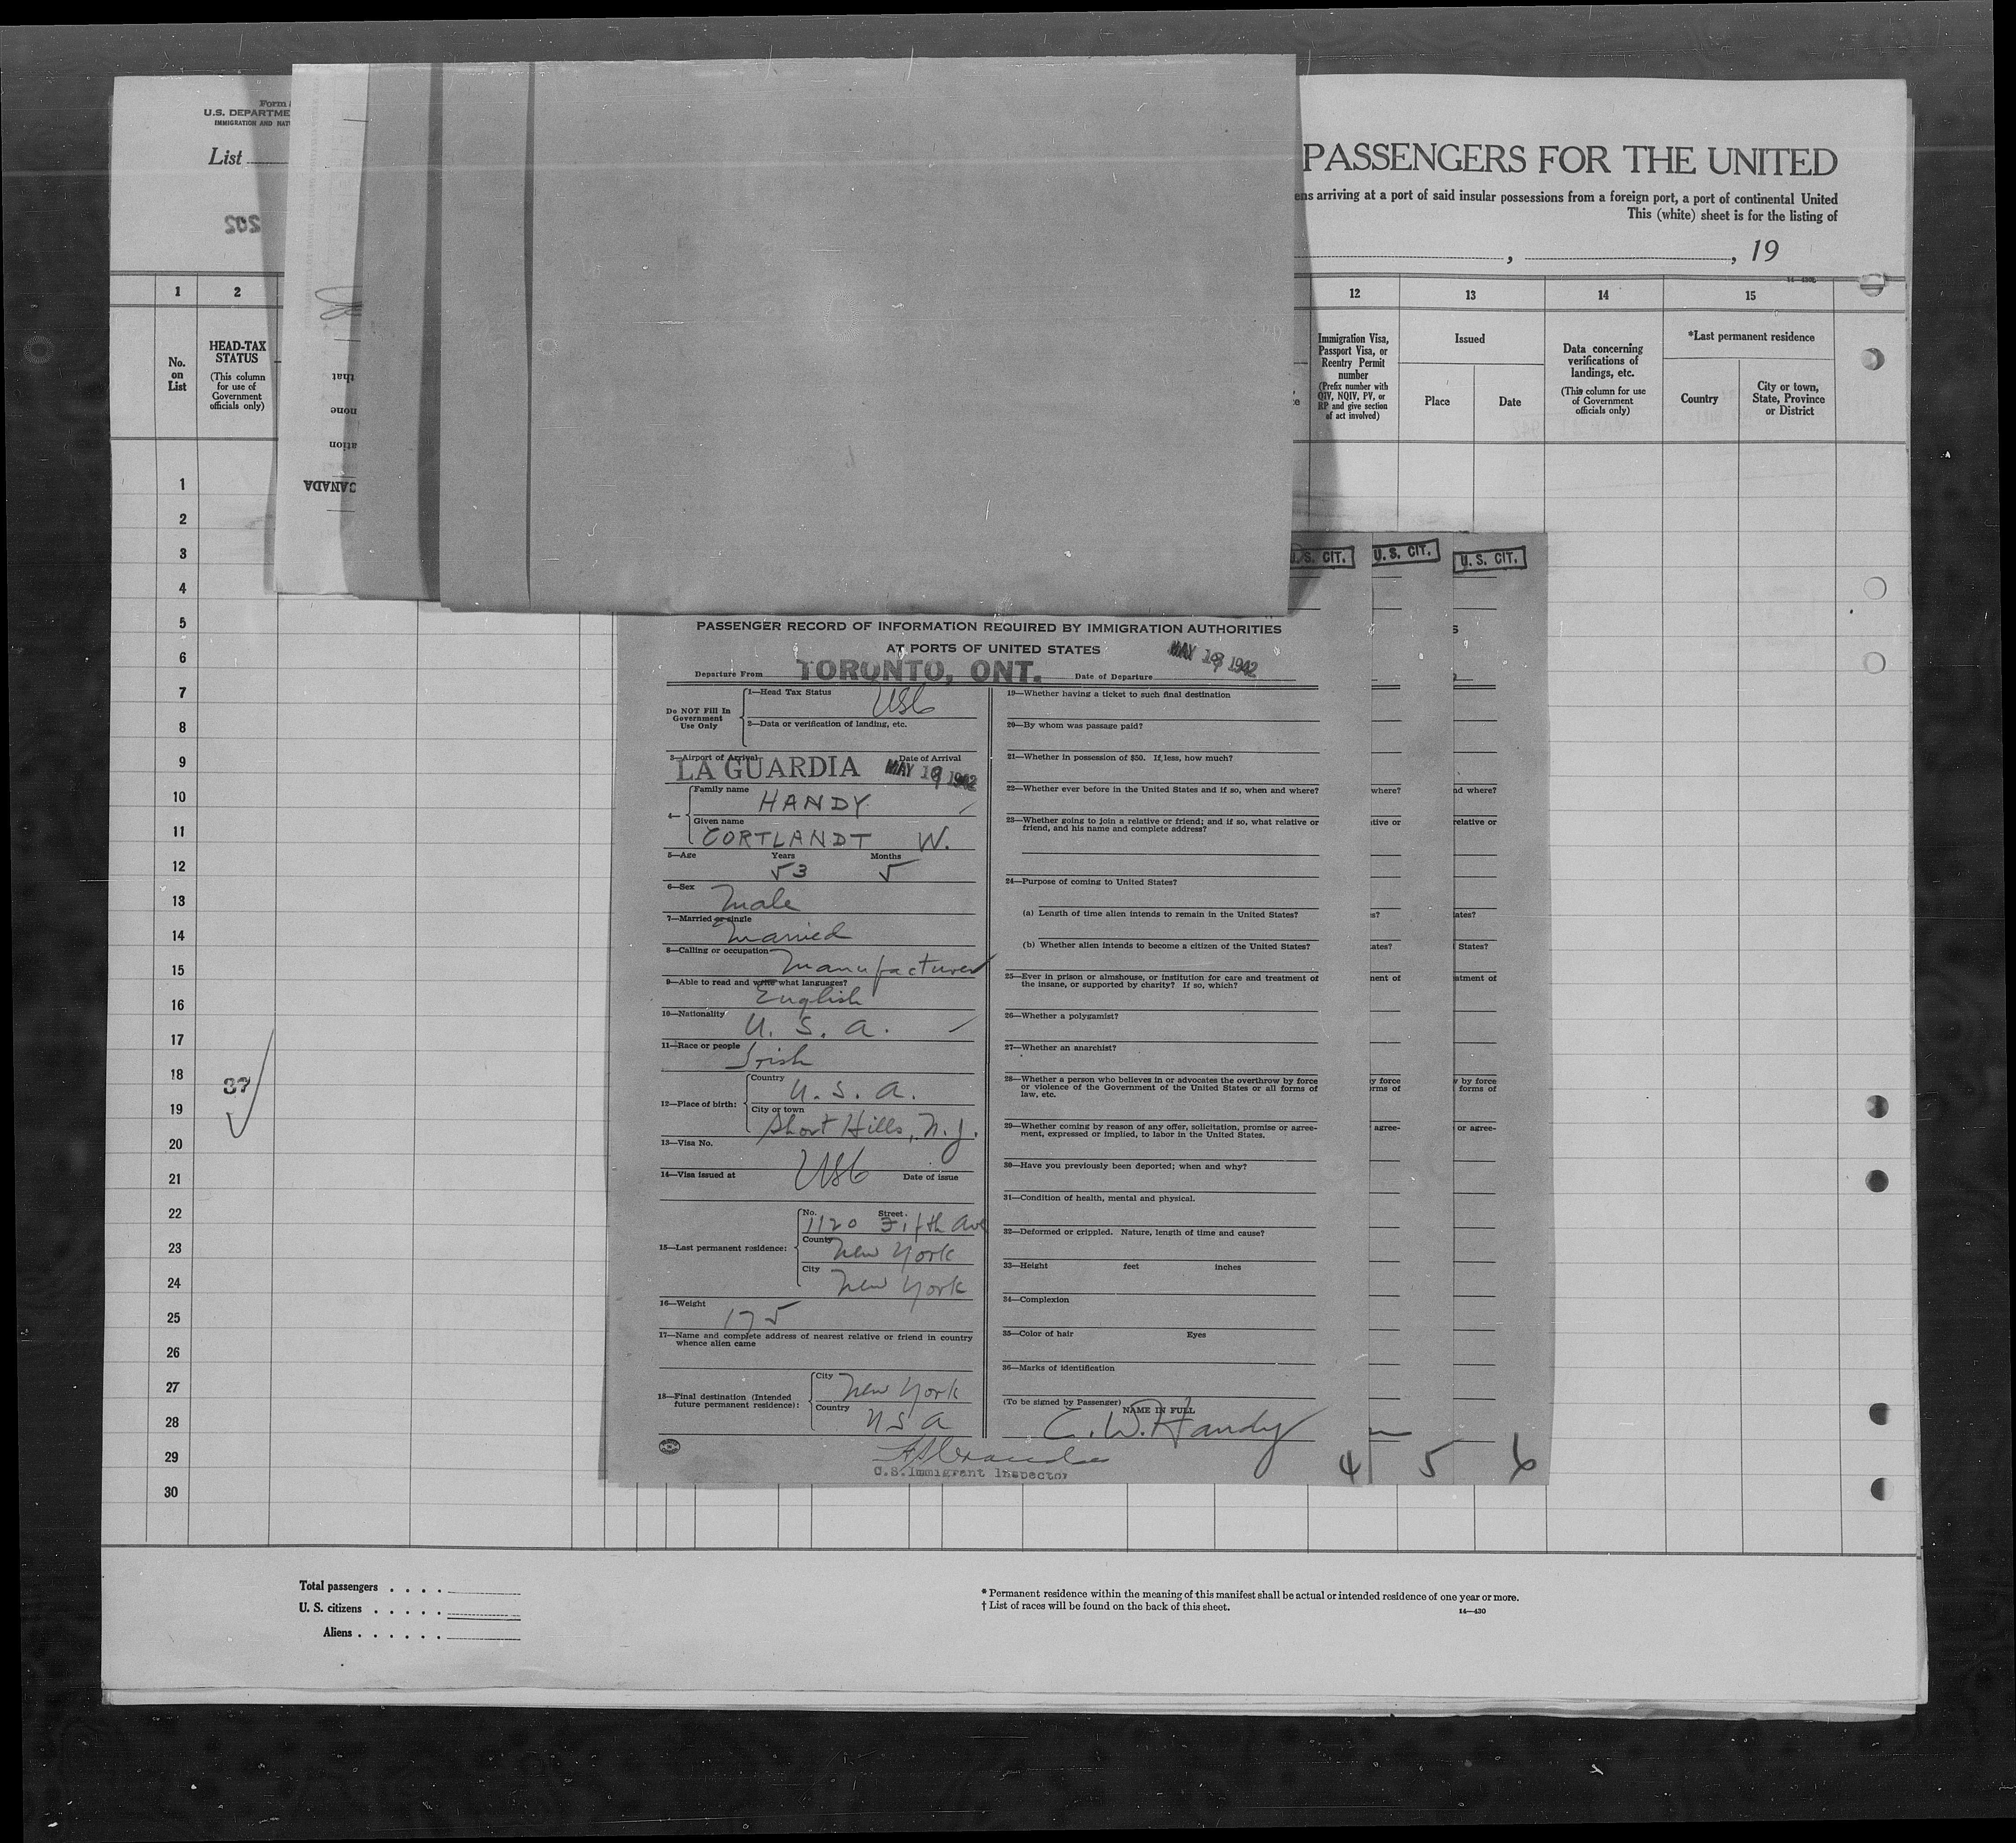 Form
U.S. DEPARTME
IMMIGRATION AND NAT
List
202
PASSENGERS FOR THE UNITED
ens arriving at a port of said insular possessions from a foreign port, a port of continental United
This (white) sheet is for the listing of
, , 19
1 2 12 13 14 15
No. on List
HEAD-TAX STATUS
(This column for use of Government officials only)
Immigration Visa, Passport Visa, or Reentry Permit number
(Prefix number with QIV, NQIV, PV, or RP and give section of act involved)
Issued
Place
Date
Data concerning verifications of landings, etc.
(This column for use of Government officials only)
*Last permanent residence
Country
City or town, State, Province or District
that
none
ation
CANADA
1
2
3
4
5
6
7
8
9
10
11
12
13
14
15
16
17
18
19
20
21
22
23
24
25
26
27
28
29
30
37
U.S. CIT.
U.S. CIT.
U.S. CIT.
PASSENGER RECORD OF INFORMATION REQUIRED BY IMMIGRATION AUTHORITIES
AT PORTS OF UNITED STATES
Departure From TORONTO, ONT. Date of Departure MAY 19 1942
Do NOT Fill In Government Use Only
1—Head Tax Status USC
2—Data or verification of landing, etc.
3—Airport of Arrival Date of Arrival
LA GUARDIA MAY 19 1942
4— Family name HANDY
Given name CORTLANDT W.
5—Age Years 53 Months 5
6—Sex Male
7—Married or single Married
8—Calling or occupation Manufacturer
9—Able to read and write what languages? English
10—Nationality U. S. A.
11—Race or people Irish
12—Place of birth: Country U. S. A.
City or town Short Hills, N. J.
13—Visa No. USC
14—Visa issued at Date of issue
15—Last permanent residence: No. 1120 Street. Fifth Ave
County New York
City New York
16—Weight 175
17—Name and complete address of nearest relative or friend in country
whence alien came
18—Final destination (Intended future permanent residence): City New York
Country USA
19—Whether having a ticket to such final destination
20—By whom was passage paid?
21—Whether in possession of $50. If less, how much?
22—Whether ever before in the United States and if so, when and where?
23—Whether going to join a relative or friend; and if so, what relative or
friend, and his name and complete address?
24—Purpose of coming to United States?
(a) Length of time alien intends to remain in the United States?
(b) Whether alien intends to become a citizen of the United States?
25—Ever in prison or almshouse, or institution for care and treatment of
the insane, or supported by charity? If so, which?
26—Whether a polygamist?
27—Whether an anarchist?
28—Whether a person who believes in or advocates the overthrow by force
or violence of the Government of the United States or all forms of
law, etc.
29—Whether coming by reason of any offer, solicitation, promise or agree-
ment, expressed or implied, to labor in the United States.
30—Have you previously been deported; when and why?
31—Condition of health, mental and physical.
32—Deformed or crippled. Nature, length of time and cause?
33—Height feet inches
34—Complexion
35—Color of hair Eyes
36—Marks of identification
(To be signed by Passenger) NAME IN FULL
C. W. Handy
U.S. Immigrant Inspector
4 5 6
where?
tive or
s?
ates?
ment of
y force
rms of
agree-
nd where?
relative or
ates?
States?
atment of
by force
forms of
or agree-
Total passengers . . . .
U. S. citizens . . . . .
Aliens . . . . . .
* Permanent residence within the meaning of this manifest shall be actual or intended residence of one year or more.
† List of races will be found on the back of this sheet.
14—430